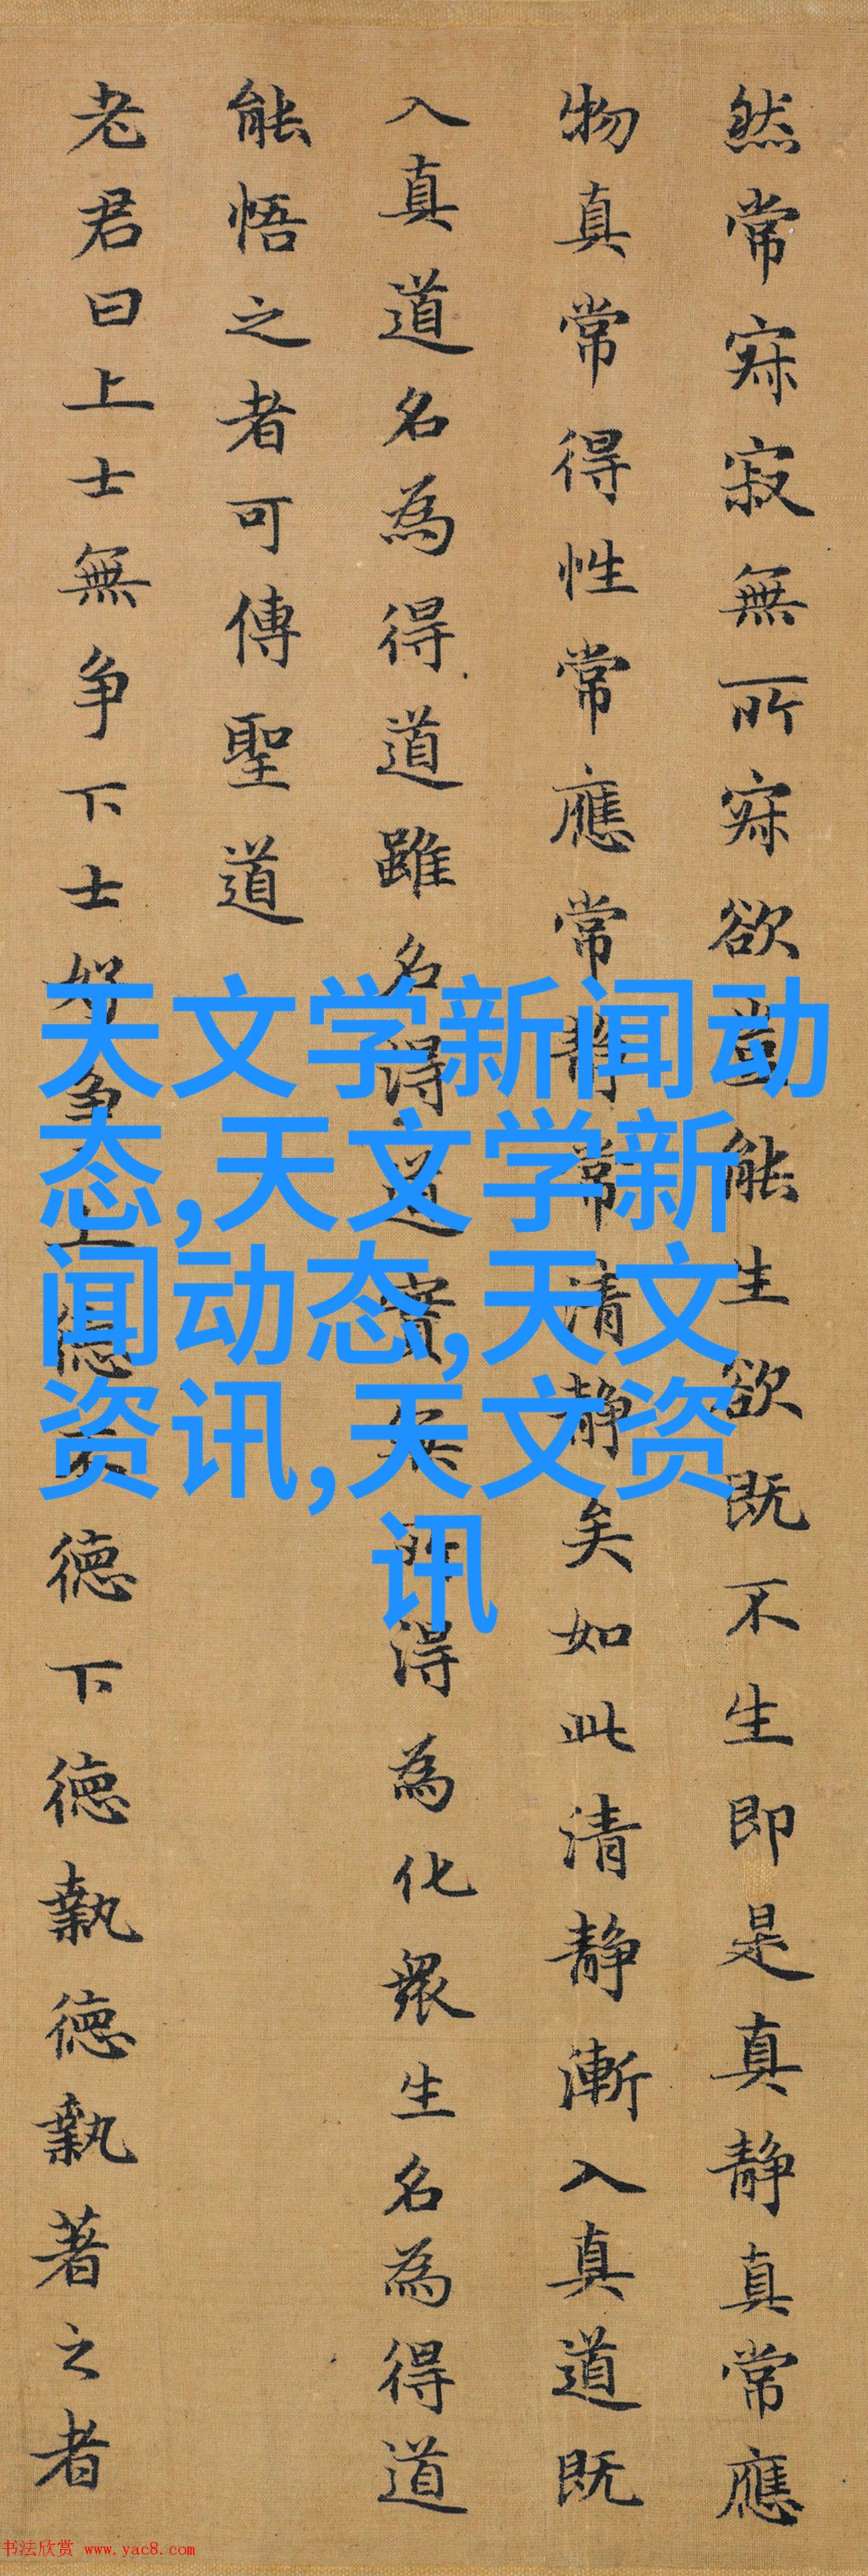 然常寂寂無所寂欲豈能生欲既不生即是真静真常應
物真常得性常應常静常清静矣如此清静漸入真道既
入真道名為得道雖名得道實無所得為化衆生名為得道
能悟之者可傳聖道
老君曰上士無争下士好争上德不德下德執德執著之者
天文学新闻动
态,天文学新
闻动态,天文
资讯,天文资
讯
书法欣赏 www.yac8.com